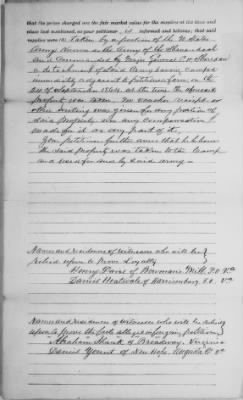 that the prices charged are the fair market value for the supplies at the time and
place last mentioned, as your petitioner is informed and believes; that said
supplies were (3) Taken by a portion of the U. States
Army known as the Army of the Shenandoah
and Commanded by Major General P. H. Sheridan
a detachment of said Army having camped
immediately adjacent to petitioners farm on the
of September 1864 at the time the aforesaid
property was taken. No voucher receipt or
other writing was given for any portion of
said property nor any compensation
made for it or any part of it,
Your petitioner further avers that he believes
the said property was taken to the Camp
and used for and by said army
Names and residence of Witnesses who will be
relied upon to prove Loyalty
Henry of Bowmans Mill P.O. Va
Daniel Heatwole of Harrisonburg P.O. Va
Names and residence of witnesses who will be relied
upon to prove the facts alleged in foregoing petition
Abraham Shank of Broadway, Virginia
Daniel Yount of New Hope Augusta Co Va